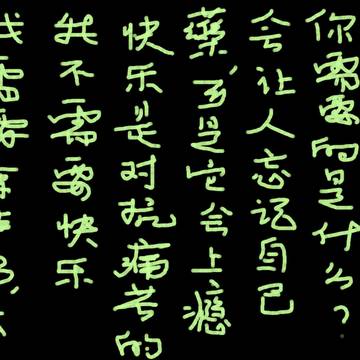 我需要
我不需要快乐
快乐是对抗痛苦的
藥，可是它会上瘾
会让人忘记自己
你需要的是什么？